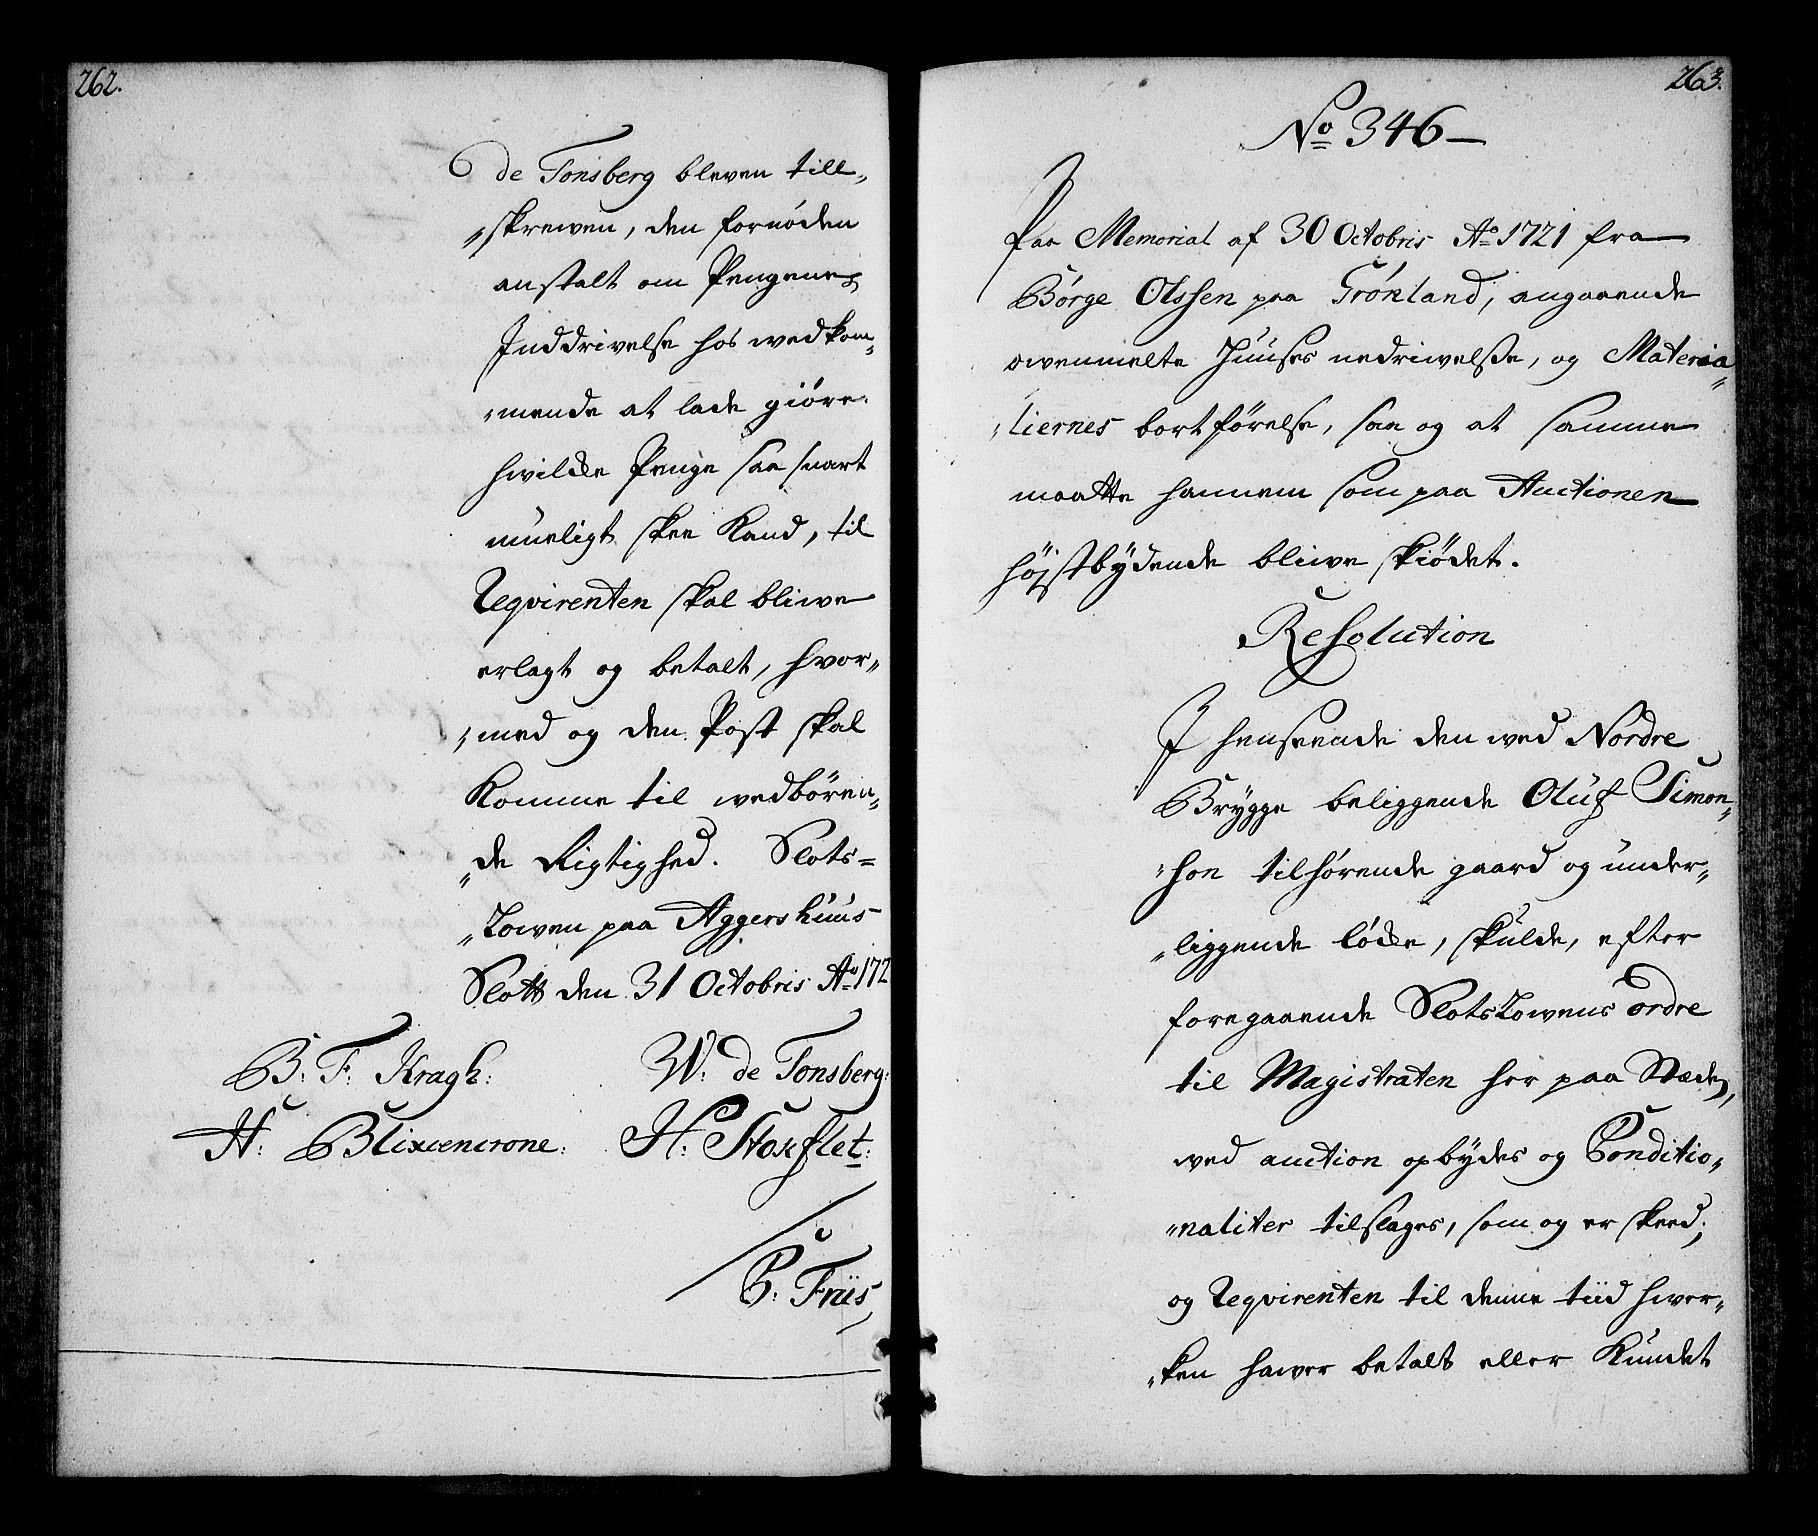 262.
de Tonsberg bleven till„
„skrewen, den fornöden
anstalt om Pengenes
Inddrivelse hos wedkom„
„mende at lade giöre.
hvilcke Penge saa snart
mueligt skee Kand, til
Reqvirenten skal bliwe
erlagt og betalt, hvor„
„med og den Post skal
Komme til wedbören„
„de Rigtighed. Slots=
„Lowen paa Aggershuus
Slott den 31 Octobris Ao 172
B: F: Kragh: W: de Tonsberg:
H: Blixencrone: H: Stockflet:
B: Friis,
263.
No 346
Paa Memorial af 30 Octobris Ao 1721 fra
Börge Olssen paa Grönland, angaaende
owenmelte Huuses nedriwelsse, og Materia„
„liernes bortförelse, saa og at samme
maatte hannem som paa Auctionen
höjstbÿdende bliwe skiödet.
Resolution
I henseende den wed Nordre
Brÿgge beliggende Oluf Simon„
„sön tilhörende gaard og under„
„liggende löcke, skulde, efter
foregaaende SlotsLowens ordre
til Magistraten her paa Stæden,
wed auction opbÿdes og Conditio„
„naliter tilslages, som og er skeed;
og Reqvirenten til denne tiid hwer„
„ken hawer betalt eller Kundet